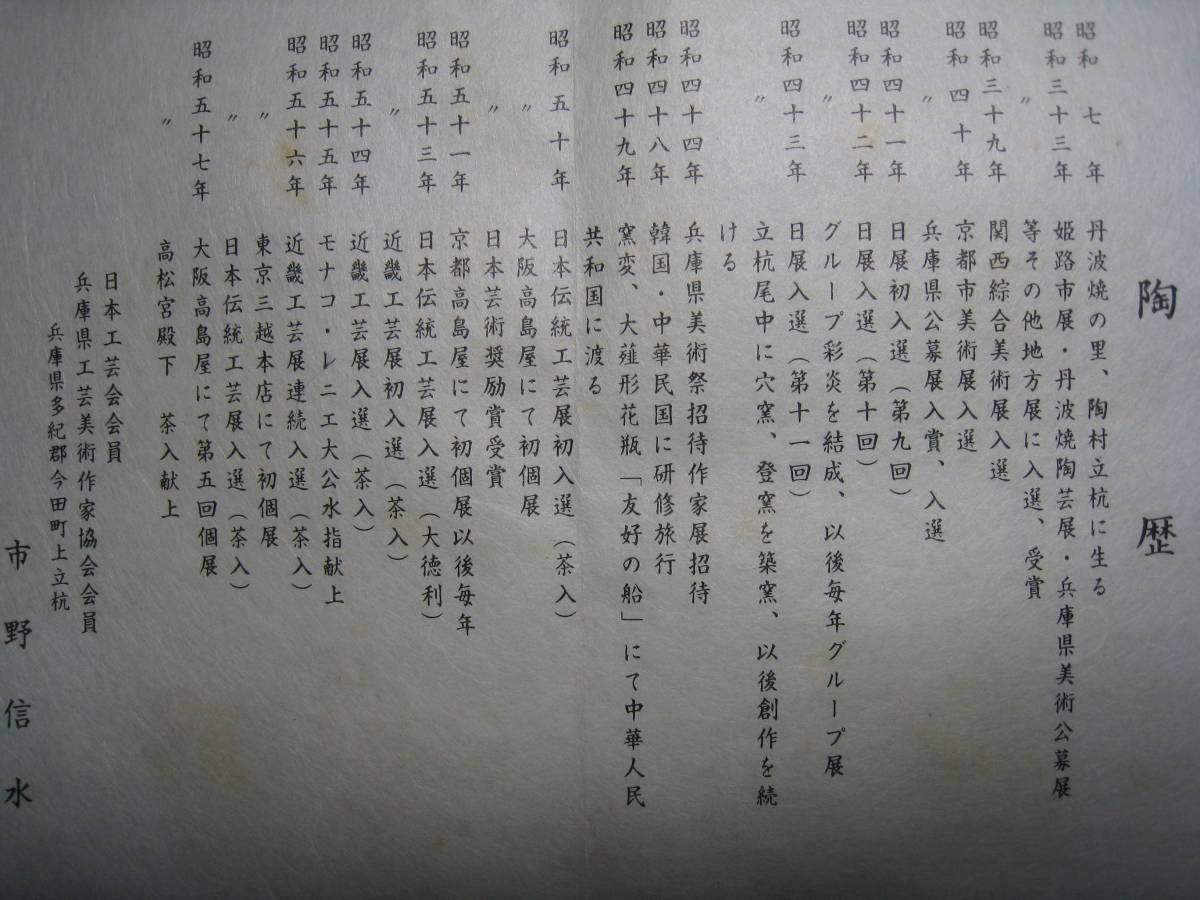 陶歴
昭和七年 丹波焼の里、陶村立杭に生る
昭和三十三年 姫路市展・丹波焼陶芸展・兵庫県美術公募展
〃 等その他地方展に入選、受賞
昭和三十九年 関西綜合美術展入選
昭和四十年 京都市美術展入選
〃 兵庫県公募展入賞、入選
昭和四十一年 日展初入選（第九回）
昭和四十二年 日展入選（第十回）
〃 グループ彩炎を結成、以後毎年グループ展
昭和四十三年 日展入選（第十一回）
〃 立杭尾中に穴窯、登窯を築窯、以後創作を続
ける
昭和四十四年 兵庫県美術祭招待作家展招待
昭和四十八年 韓国・中華民国に研修旅行
昭和四十九年 窯変、大薙形花瓶「友好の船」にて中華人民
共和国に渡る
昭和五十年 日本伝統工芸展初入選（茶入）
〃 大阪高島屋にて初個展
〃 日本芸術奨励賞受賞
昭和五十一年 京都高島屋にて初個展以後毎年
昭和五十三年 日本伝統工芸展入選（大徳利）
〃 近畿工芸展初入選（茶入）
昭和五十四年 近畿工芸展入選（茶入）
昭和五十五年 モナコ・レニエ大公水指献上
昭和五十六年 近畿工芸展連続入選（茶入）
〃 東京三越本店にて初個展
〃 日本伝統工芸展入選（茶入）
昭和五十七年 大阪高島屋にて第五回個展
〃 高松宮殿下 茶入献上
日本工芸会会員
兵庫県工芸美術作家協会会員
兵庫県多紀郡今田町上立杭
市野信水